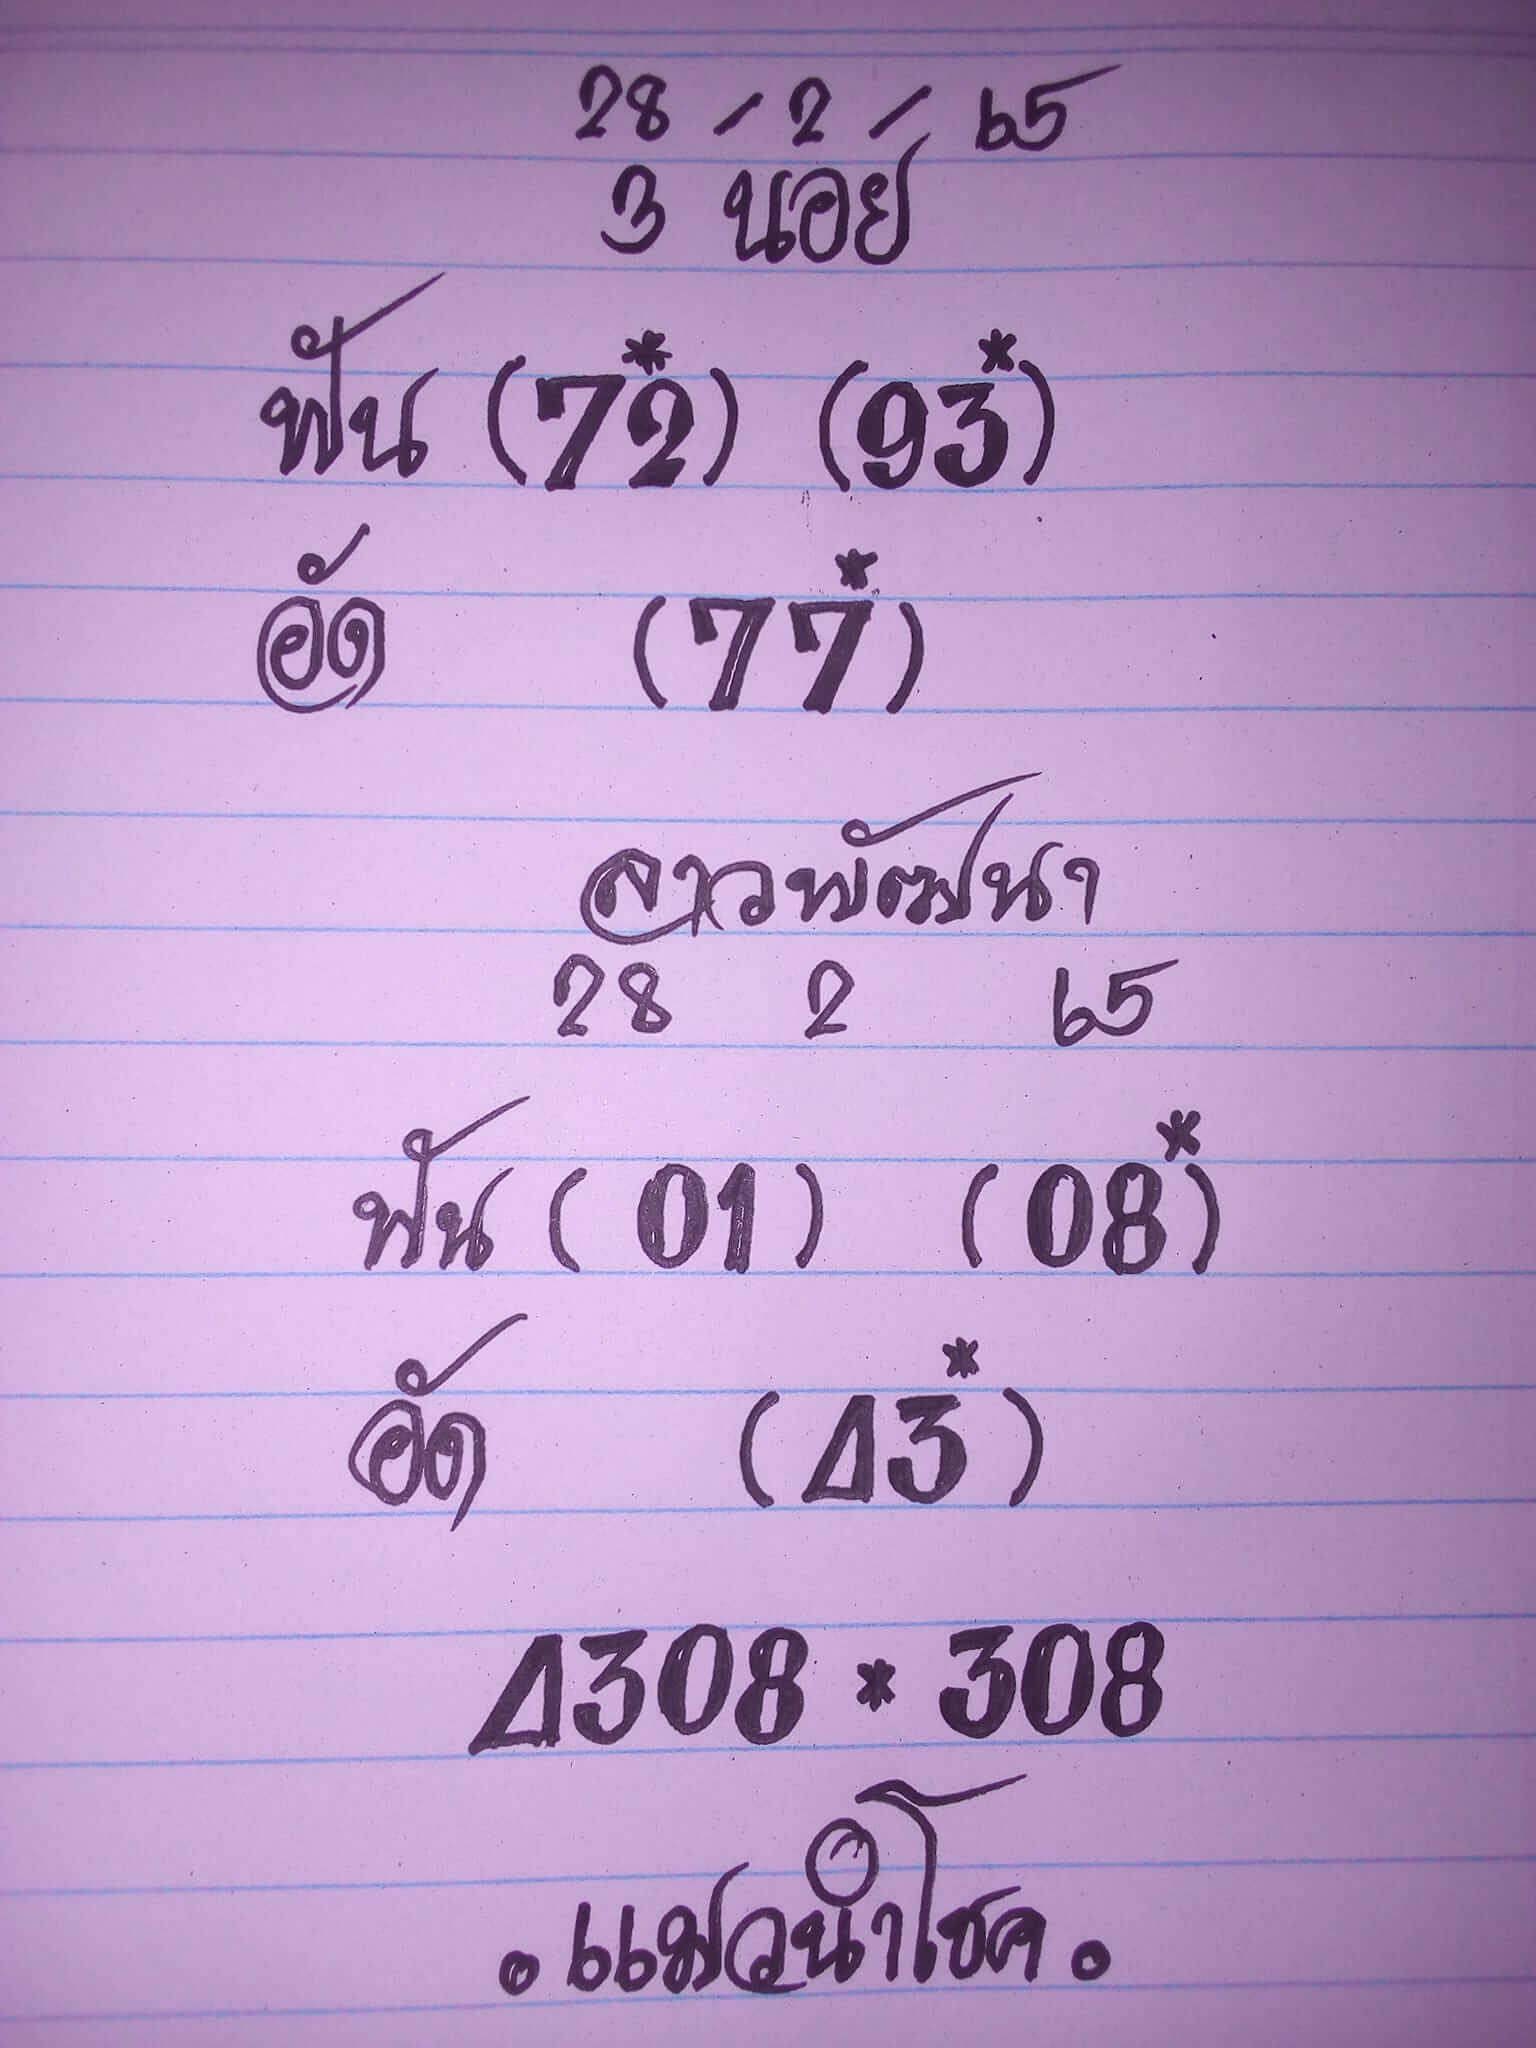 28 - 2 - 65
3 นอย
ฟัน (72*) (93*)
อัด (77*)
ลาวพัฒนา
28 2 65
ฟัน (01) (08*)
อัด (Δ3*)
Δ308 * 308
.แมวนำโชค.